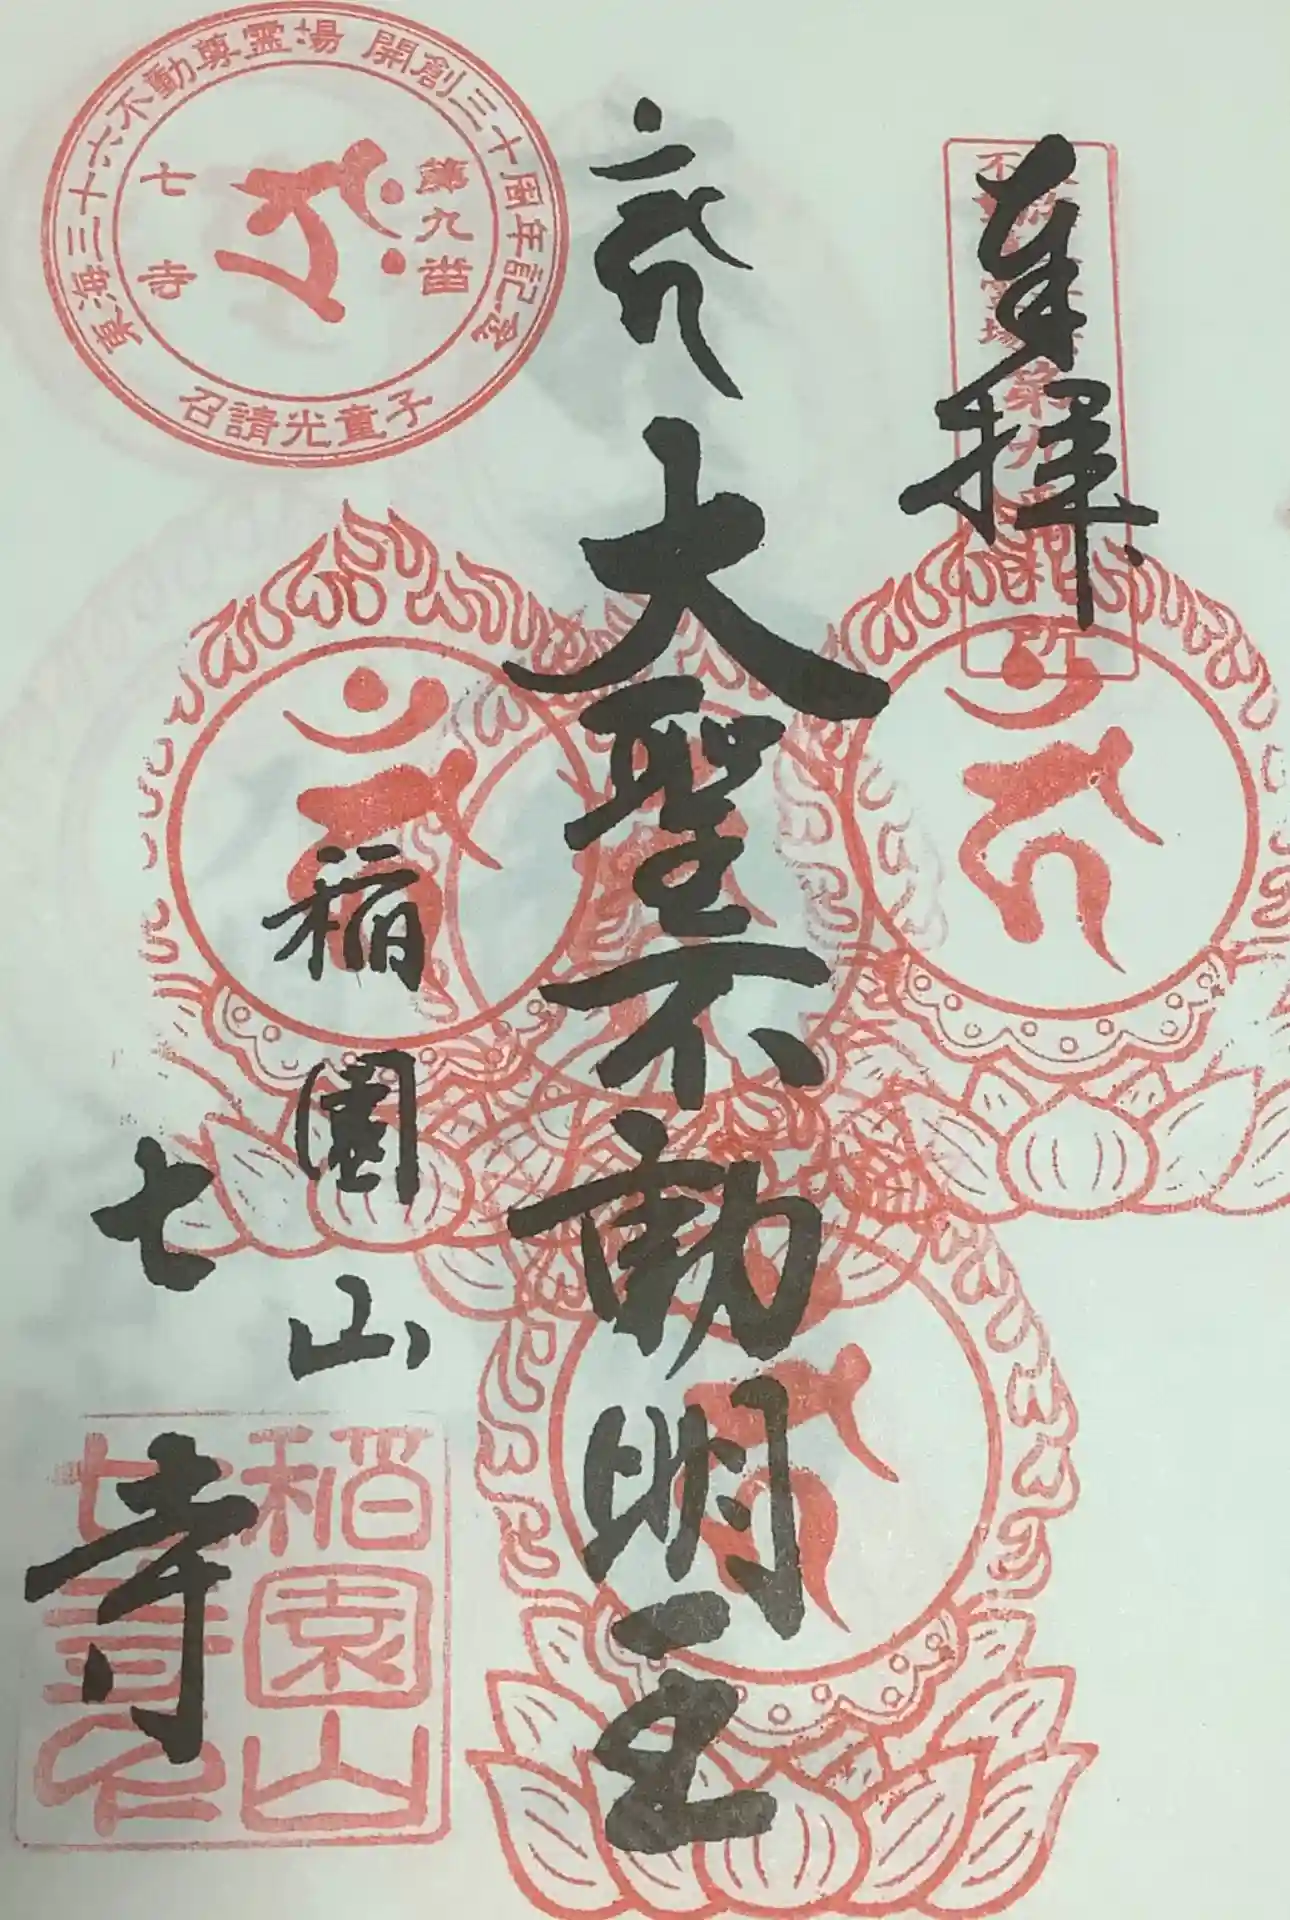 奉拝
大聖不動明王
稲園山
七寺
東海三十六不動尊霊場 開創三十周年記念
第九番
七寺
召請光童子
第九番札所
稲園山